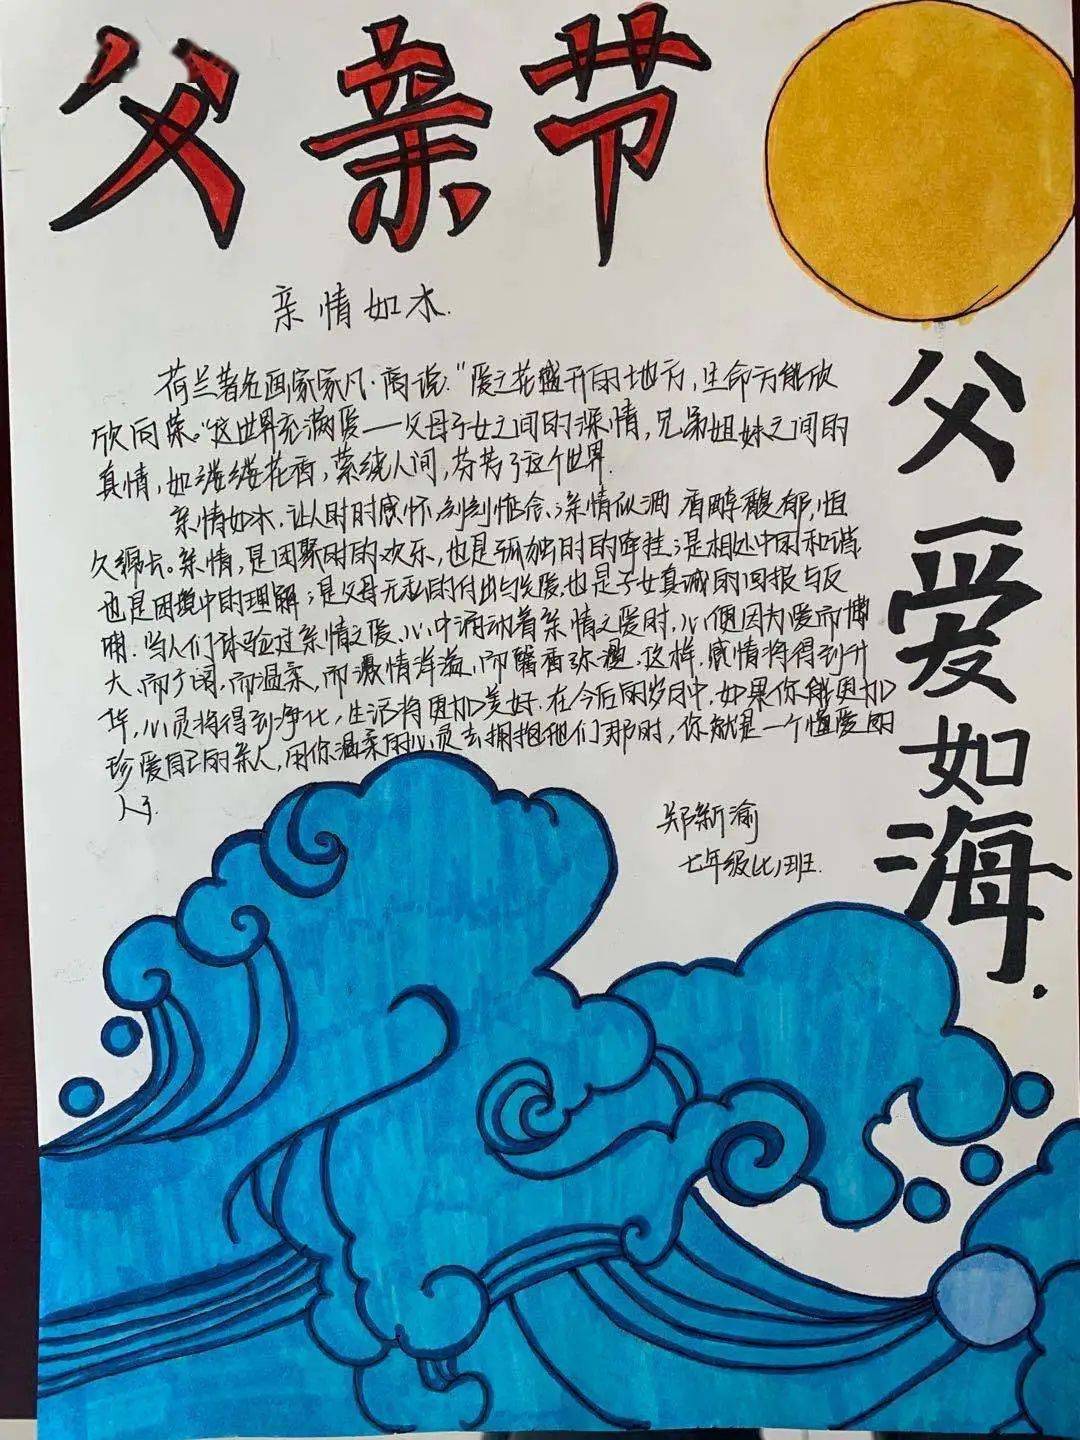 父亲节
亲情如木.
荷兰著名画家家凡·高说:"爱之花盛开的地方,生命方能欣
欣向荣。"这世界充满爱——父母子女之间的深情,兄弟姐妹之间的
真情,如缕缕花香,萦绕人间,芬芳了这个世界.
亲情如水,让人时时感怀,刻刻惦念;亲情似酒,香醇馥郁,恒
久绵长。亲情,是团聚时的欢乐,也是孤独时的牵挂;是相处中的和谐.
也是困境中的理解;是父母无私的付出与关爱,也是子女真诚的回报与反
哺.当人们体验过亲情之爱、心中涌动着亲情之爱时,心便因为爱而博
大、而广阔,而温柔,而激情洋溢,而馨香弥漫,这样,感情将得到升
华,心灵将得到净化,生活将更加美好.在今后的岁月中,如果你能更加
珍爱自己的亲人,用你温柔的心灵去拥抱他们那时,你就是一个懂爱的
人了.
郑新渝
七年级(2)班.
父爱如海.